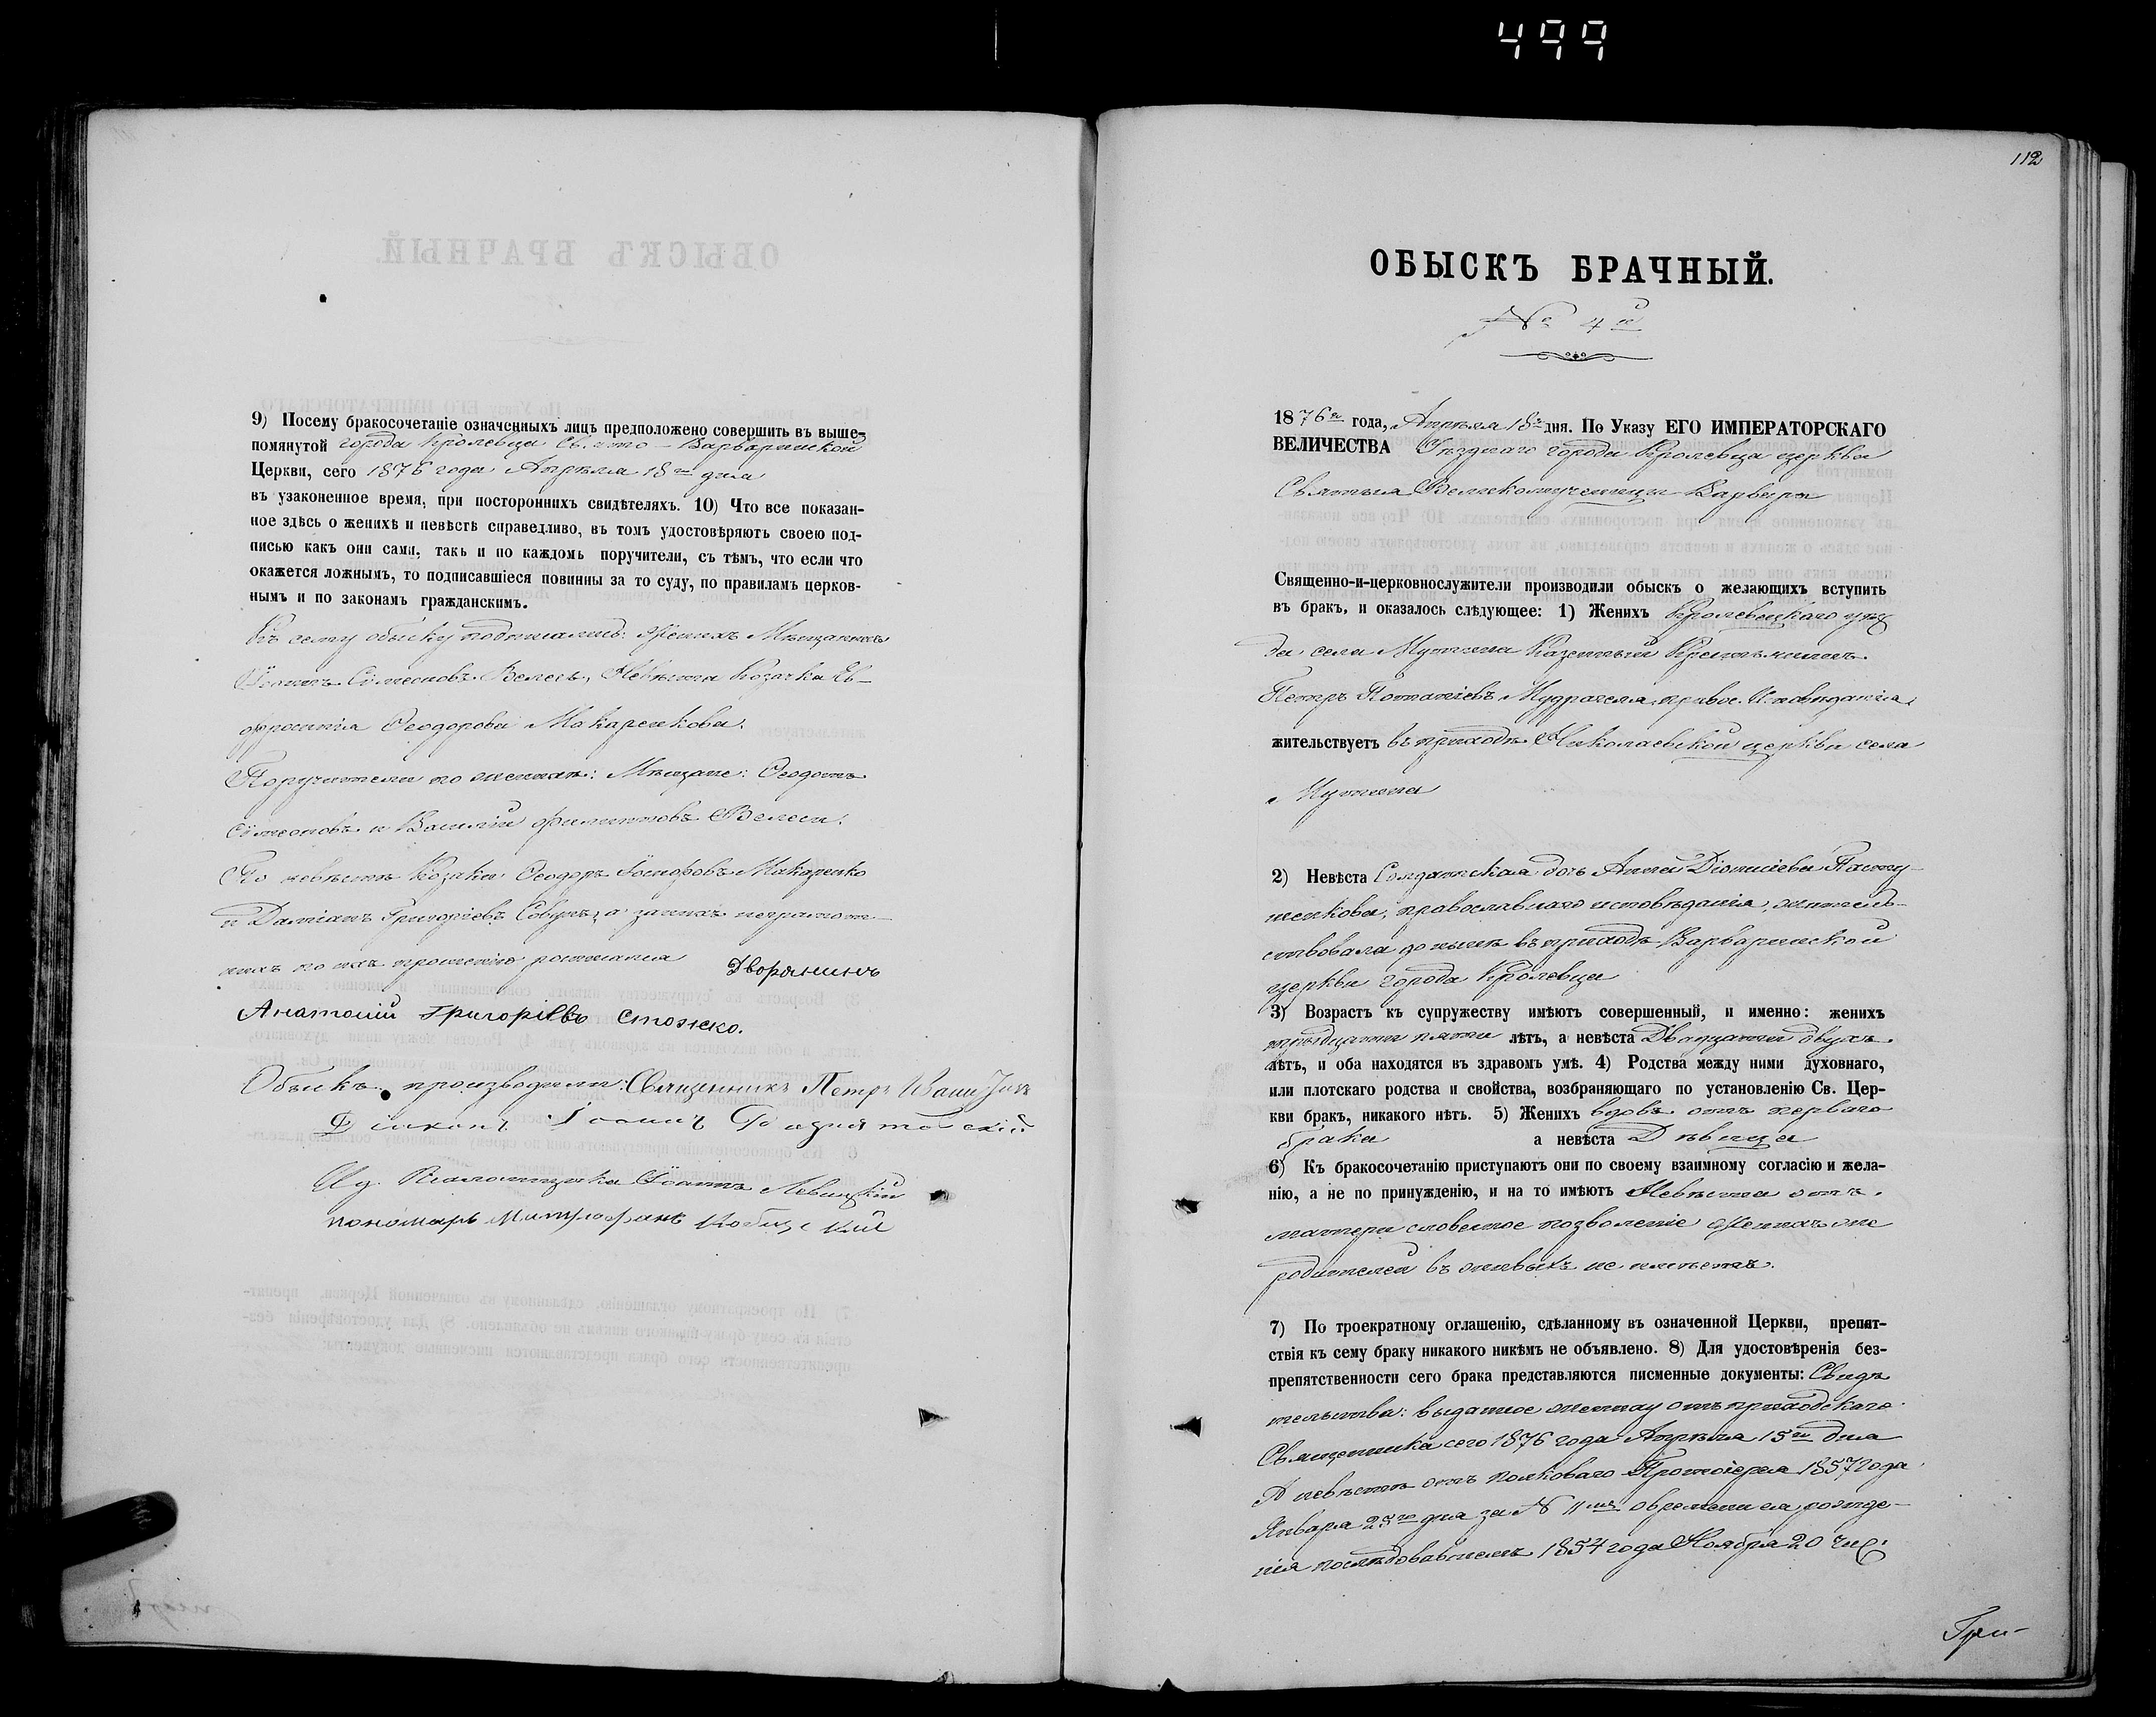 499
9) Посему бракосочетаніе означенныхъ лицъ предположено совершить въ выше-
помянутой города Кролевца Свято-Варваринской
Церкви, сего 1876 года Апрѣля 18го дня
въ узаконенное время, при постороннихъ свидѣтеляхъ. 10) Что все показан-
ное здѣсь о женихѣ и невѣстѣ справедливо, въ томъ удостовѣряютъ своею под-
писью какъ они сами, такъ и по каждомъ поручители, съ тѣмъ, что если что
окажется ложнымъ, то подписавшіеся повинны за то суду, по правиламъ церков-
нымъ и по законамъ гражданскимъ.
Къ сему обыску подписались: Женихъ Мѣщанинъ
Іоаннъ Сѵмеоновъ Велесъ, Невѣста Козачка Ев-
фросинія Ѳеодорова Макаренкова.
Поручители по женихѣ: Мѣщане: Ѳеодотъ
Сѵмеоновъ и Василій Филиповъ Велеси.
По невѣстѣ Козаки: Ѳеодоръ Іосифовъ Макаренко
и Даміанъ Григоріевъ а за нихъ неграмот-
ныхъ по ихъ прошенію росписался Дворянинъ
Анатолій Григоріевъ
Обыскъ производили: Священникъ Петръ
Діаконъ Іоаннъ
И. д. Псаломщика Іоаннъ Левицкій
пономарь Митрофанъ
112
ОБЫСКЪ БРАЧНЫЙ.
№ 4й
1876го года, Апрѣля 18го дня. По Указу ЕГО ИМПЕРАТОРСКАГО
ВЕЛИЧЕСТВА Уѣзднаго города Кролевца церкви
Святыя Великомученицы Варвары
Священно-и-церковнослужители производили обыскъ о желающихъ вступить
въ бракъ, и оказалось слѣдующее: 1) Женихъ Кролевецкаго уѣз
да села Мутина Казенный Крестьянинъ
Петръ Потапіевъ Мудрагеля, правос. Исповѣданія,
жительствуетъ въ приходѣ Николаевской церкви села
Мутина
2) Невѣста Солдатская дочь Анна Діонисіева Пасту-
шенкова, православнаго исповѣданія, житель-
ствовала до нынѣ въ приходѣ Варваринской
церкви города Кролевца
3) Возрастъ къ супружеству имѣютъ совершенный, и именно: женихъ
тридцати пяти лѣтъ, а невѣста Двадцати двухъ
лѣтъ, и оба находятся въ здравомъ умѣ. 4) Родства между ними духовнаго,
или плотскаго родства и свойства, возбраняющаго по установленію Св. Цер-
кви бракъ, никакого нѣтъ. 5) Женихъ вдовъ отъ перваго
брака а невѣста Дѣвица
6) Къ бракосочетанію приступаютъ они по своему взаимному согласію и жела-
нію, а не по принужденію, и на то имѣютъ Невѣста отъ
матери словесное позволеніе Женихъ же
родителей въ живыхъ не имѣетъ.
7) По троекратному оглашенію, сдѣланному въ означенной Церкви, препят-
ствія къ сему браку никакого никѣмъ не объявлено. 8) Для удостовѣренія без-
препятственности сего брака представляются писменные документы: Свидѣ
тельства: выданное жениху отъ приходскаго
Священника сего 1876 года Апрѣля 15го дня
А невѣстѣ отъ полковаго Протоіерея 1857 года
Января 25го дня за № 11мъ о времени ея рожде-
нія послѣдовавшемъ 1854 года Ноября 20 чис.
Гри-